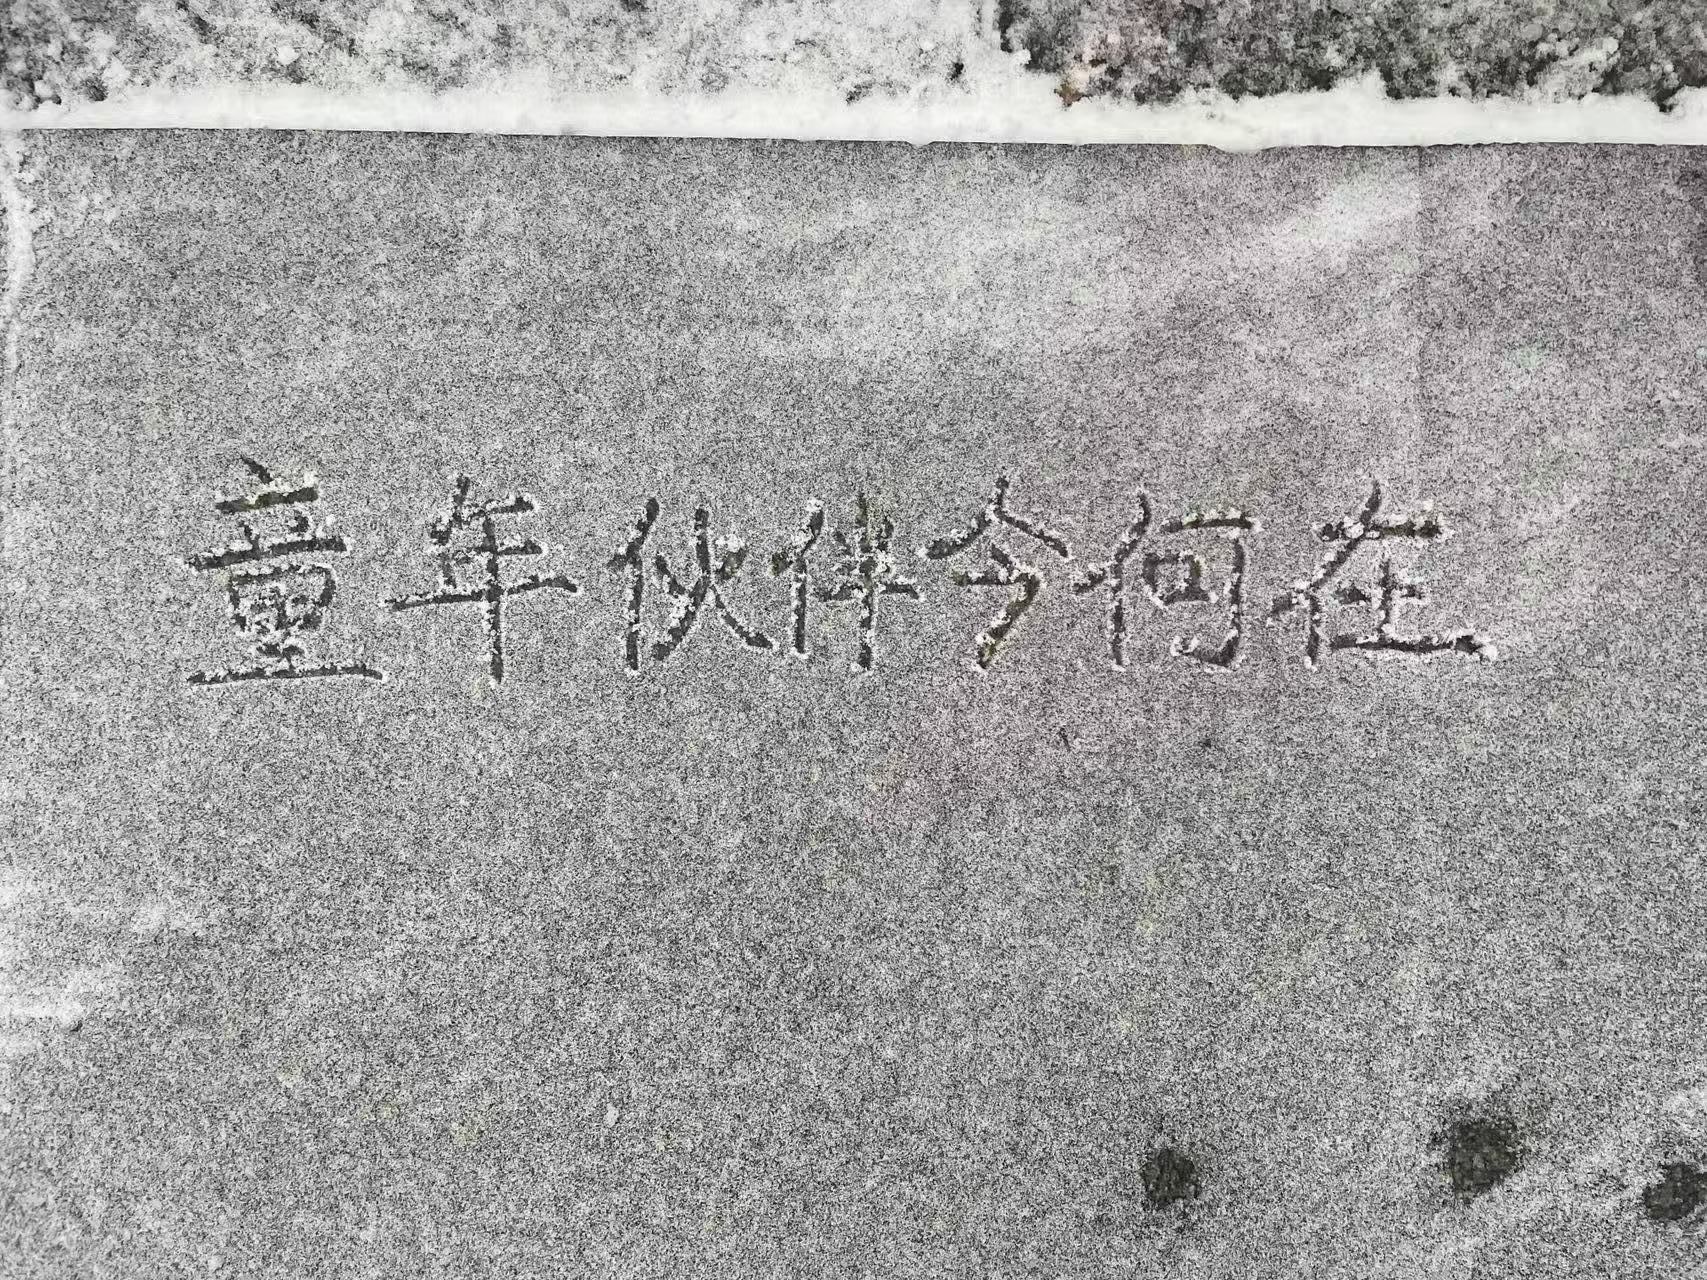 童年伙伴今何在